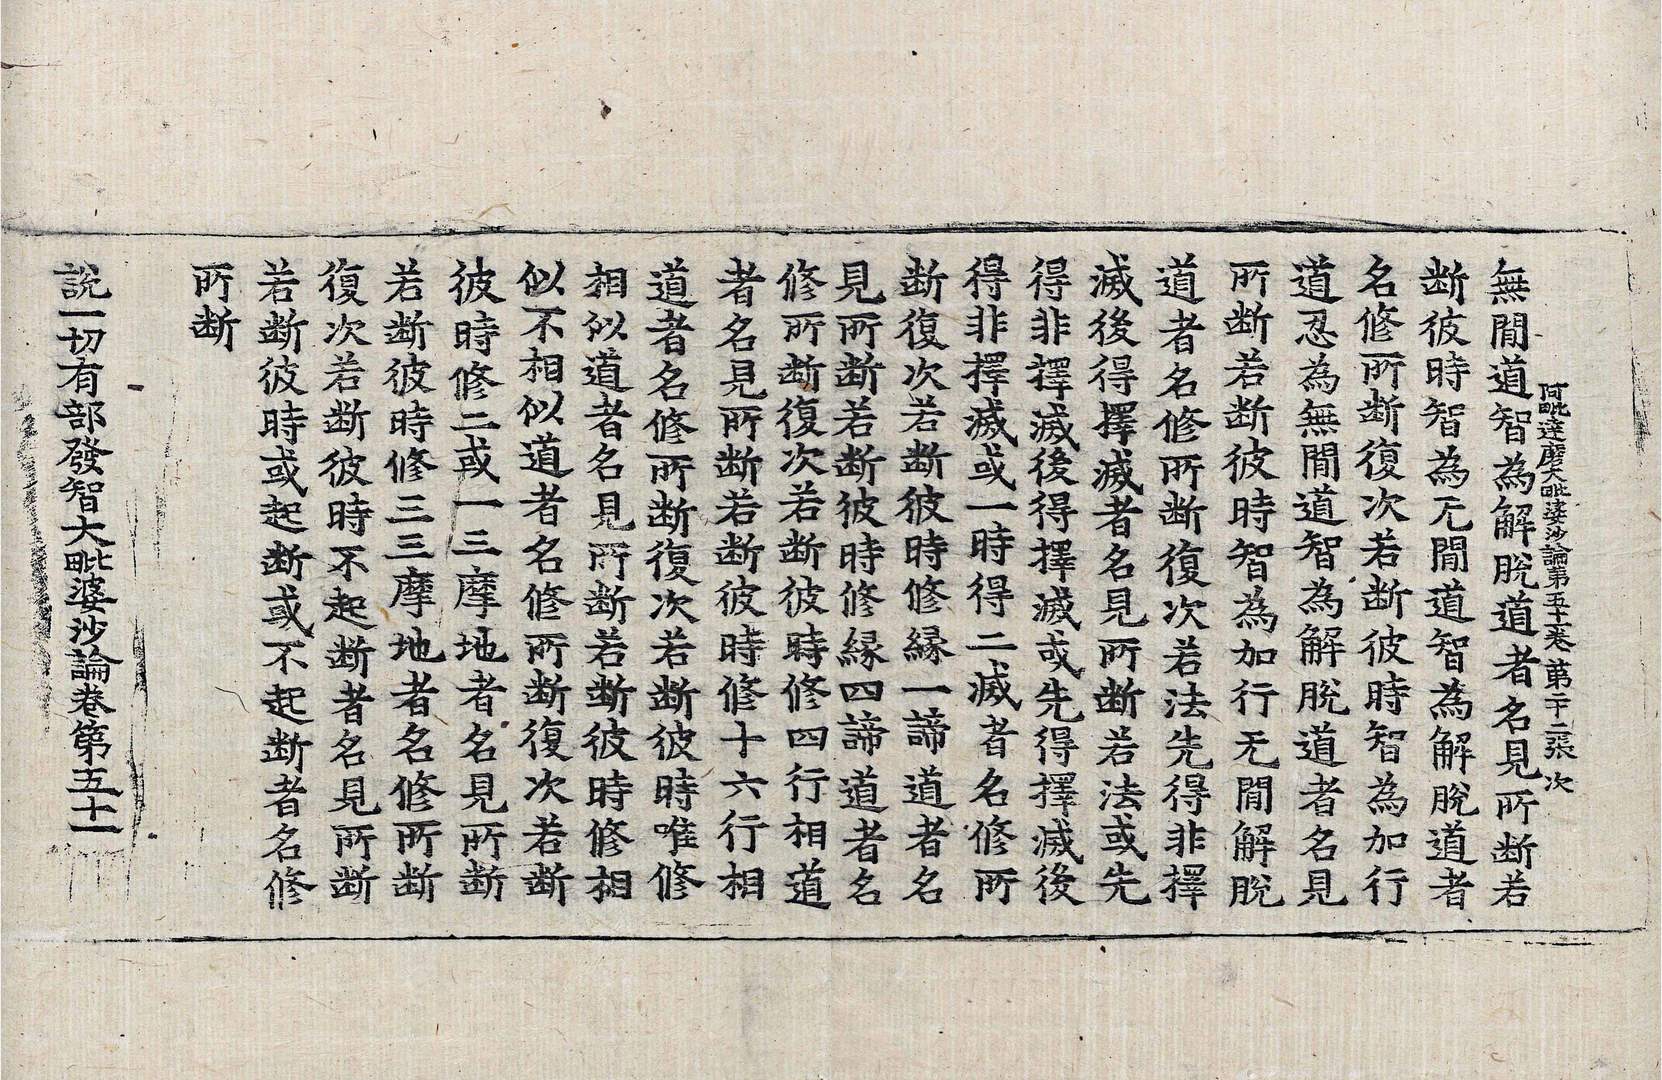 阿毗達磨大毗婆沙論第五十一卷 第二十二張 次
無閒道智為解脫道者名見所断若
断彼時智為无閒道智為解脫道者
名修所断復次若断彼時智為加行
道忍為無閒道智為解脫道者名見
所断若断彼時智為加行无閒解脫
道者名修所断復次若法先得非擇
滅後得擇滅者名見所断若法或先
得非擇滅後得擇滅或先得擇滅後
得非擇滅或一時得二滅者名修所
断復次若断彼時修緣一諦道者名
見所断若断彼時修緣四諦道者名
修所断復次若断彼時修四行相道
者名見所断若断彼時修十六行相
道者名修所断復次若断彼時唯修
相似道者名見所断若断彼時修相
似不相似道者名修所断復次若断
彼時修二或一三摩地者名見所断
若断彼時修三三摩地者名修所断
復次若断彼時不起断者名見所断
若断彼時或起断或不起断者名修
所断
說一切有部發智大毗婆沙論卷第五十一